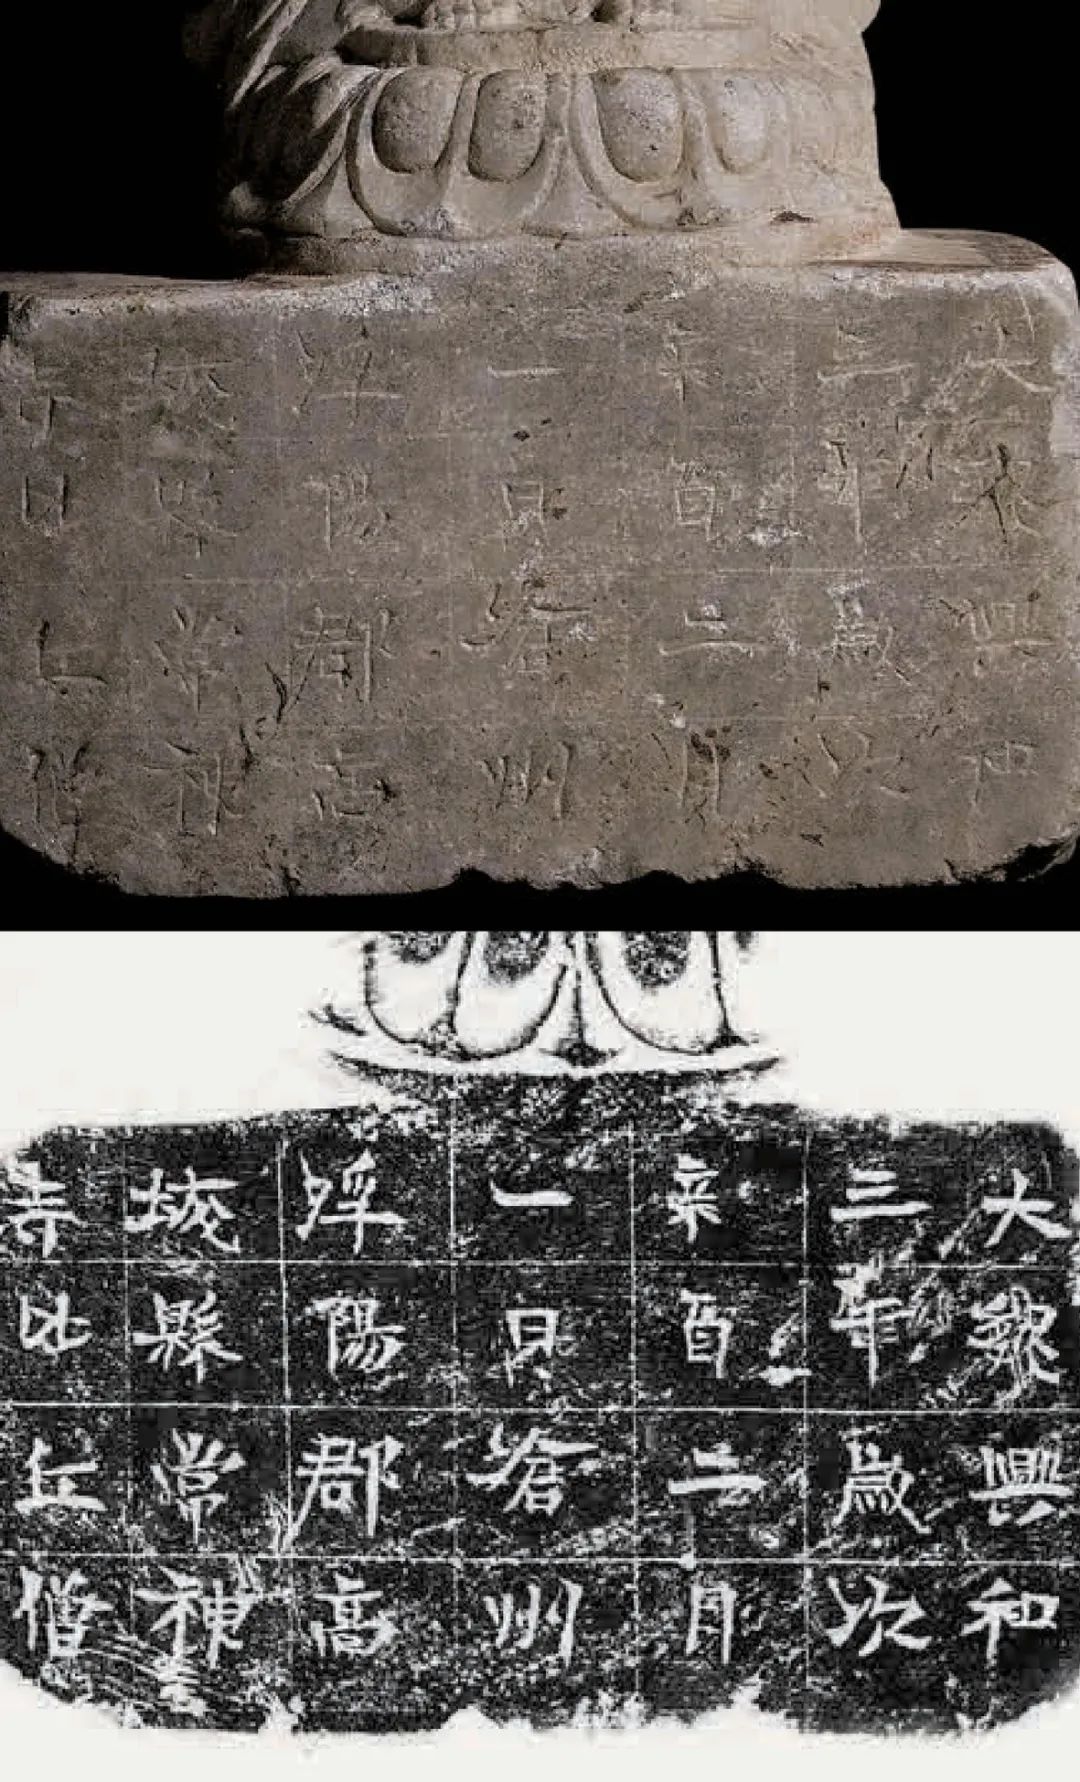 大魏興和
三年歲次
辛酉二月
一日滄州
浮陽郡高
城縣常神
寺比丘僧
大魏興和
三年歲次
辛酉二月
一日滄州
浮陽郡高
城縣常神
寺比丘僧